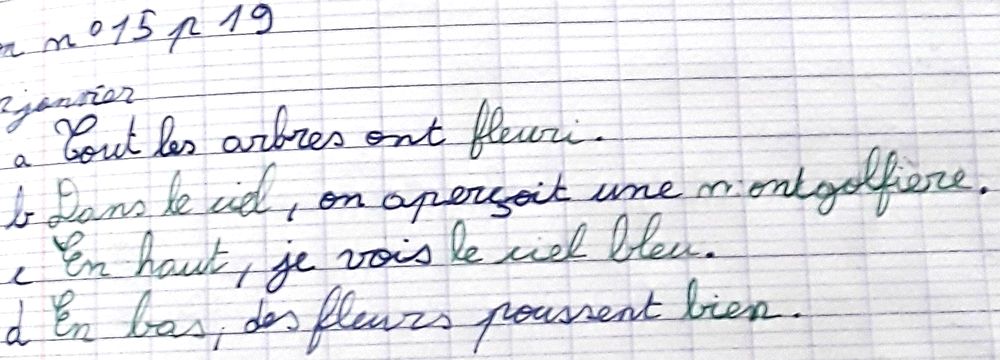 n n° 15 p 19
janvier
a Tout les arbres ont fleuri.
b Dans le ciel, on aperçoit une montgolfière.
c En haut, je vois le ciel bleu.
d En bas, des fleurs poussent bien.